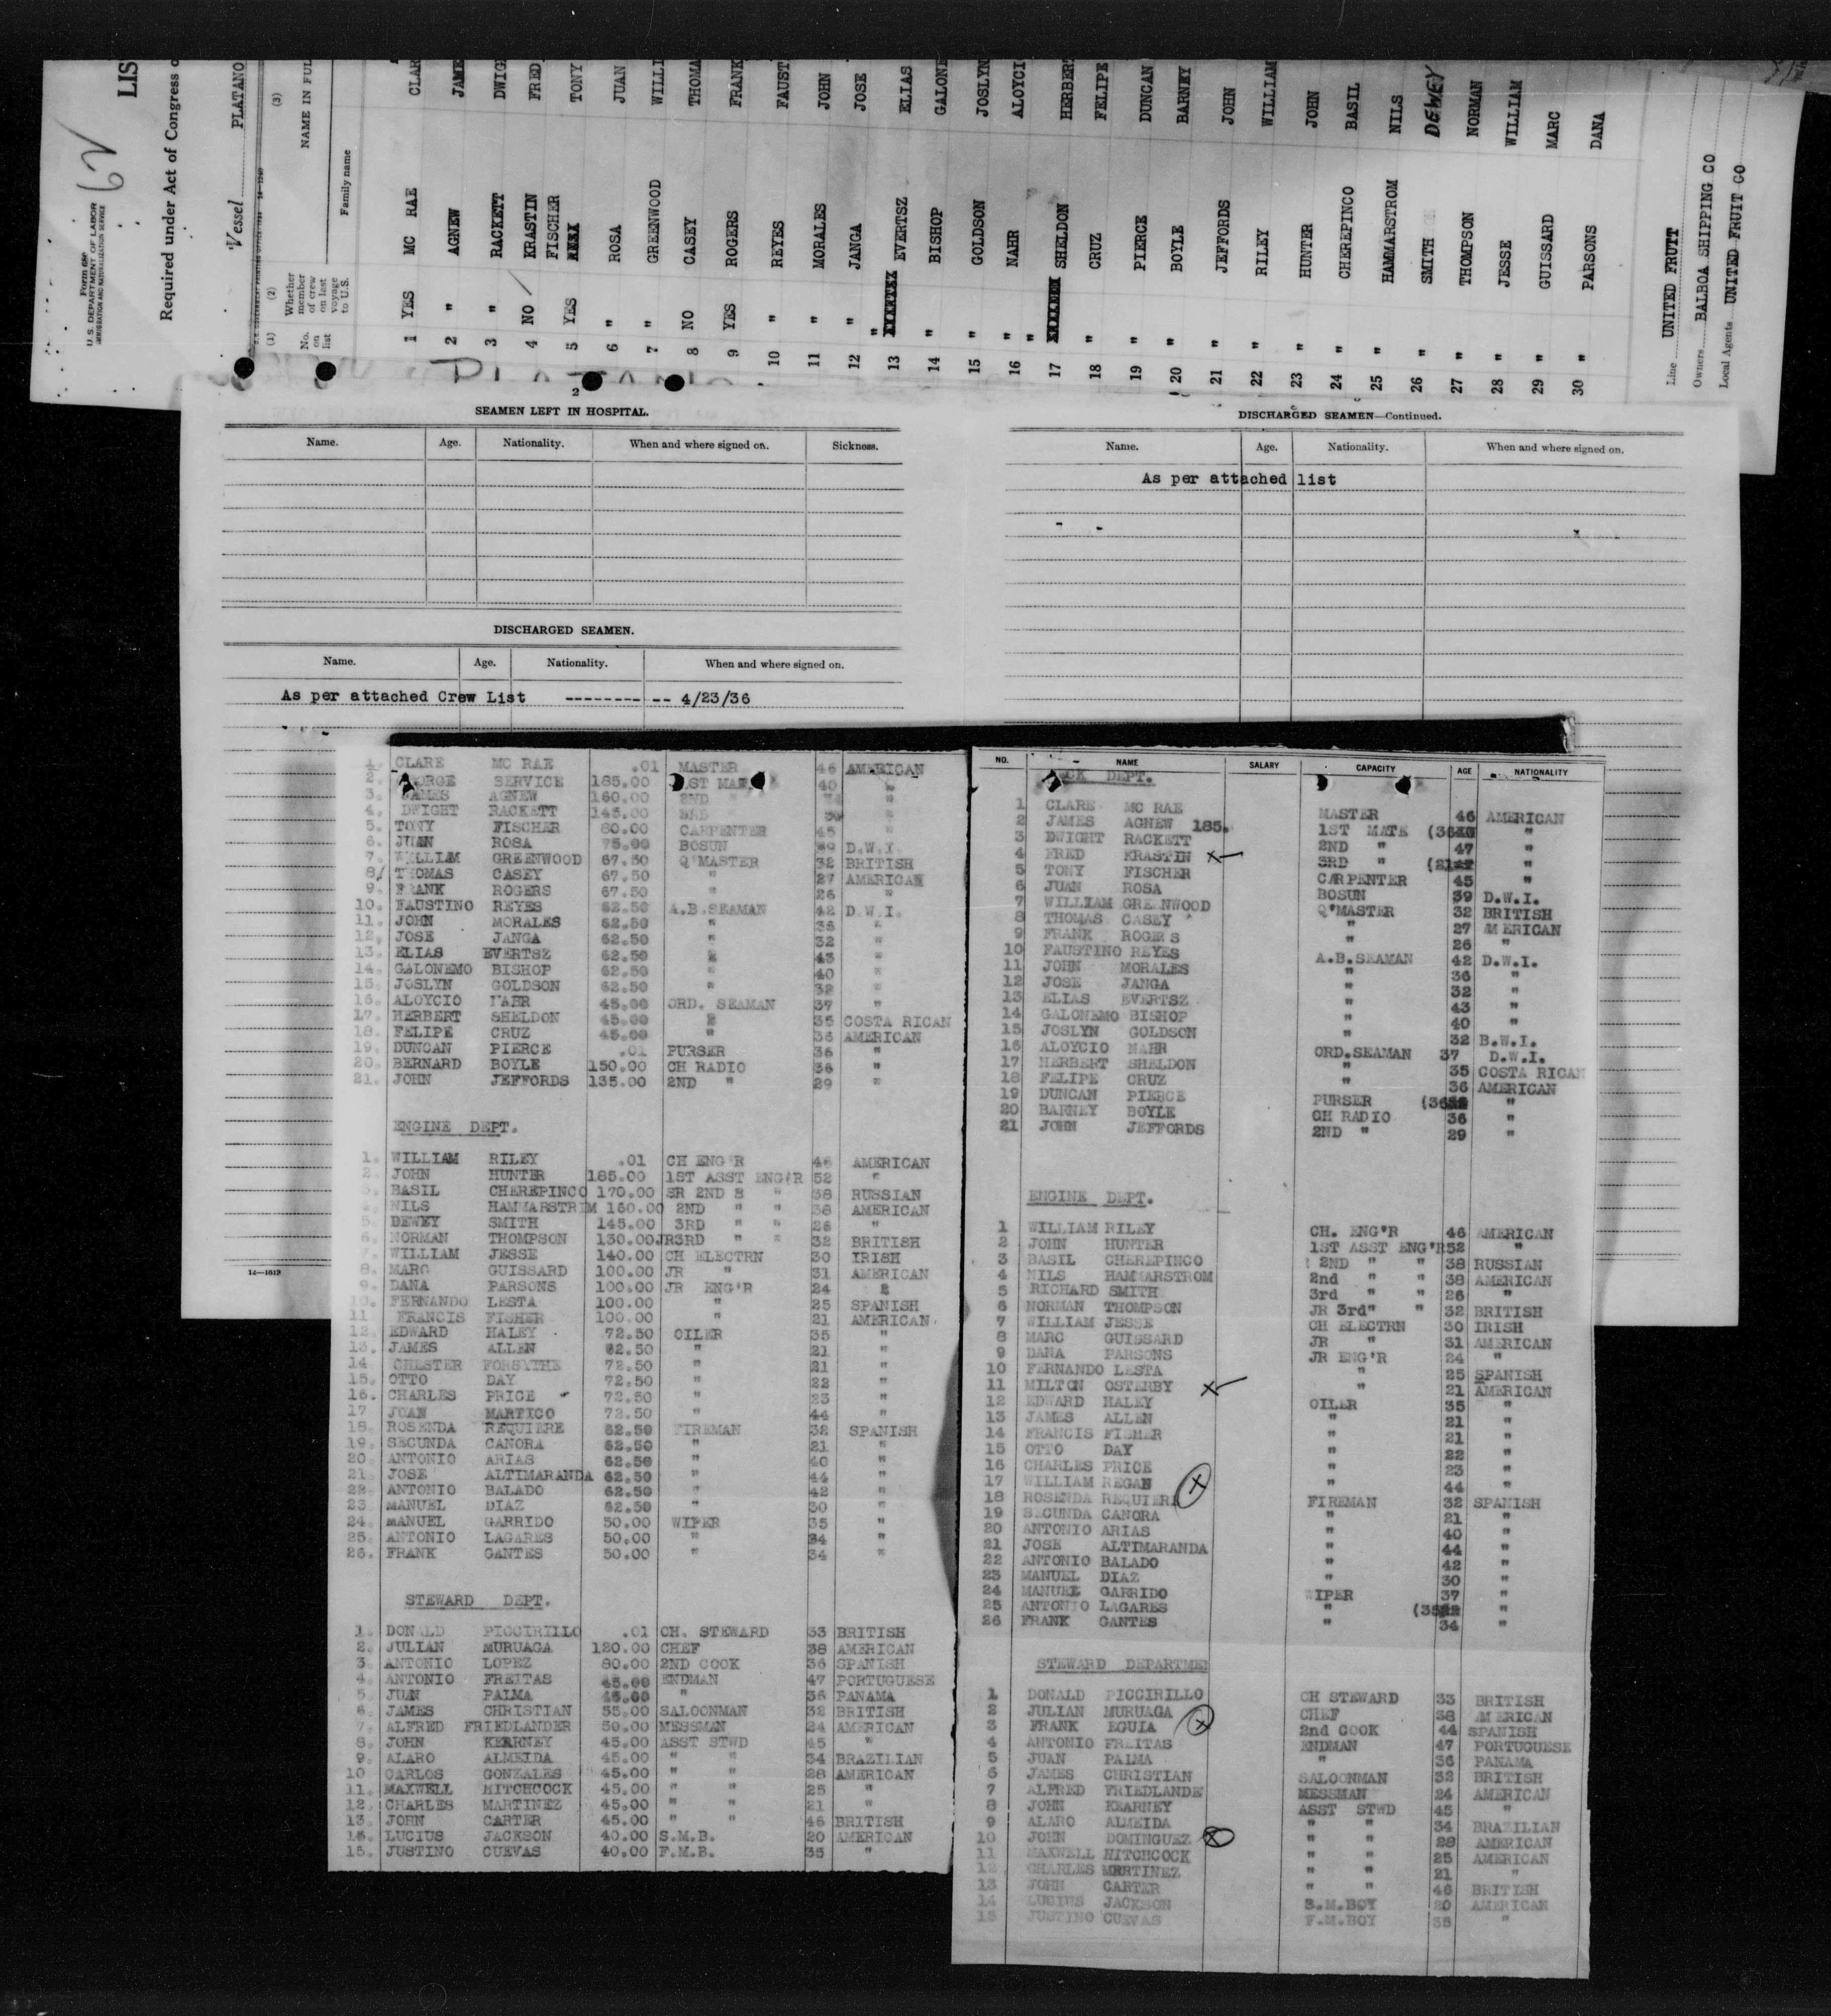 LIS
Form 689
U. S. DEPARTMENT OF LABOR
IMMIGRATION AND NATURALIZATION SERVICE
62
Required under Act of Congress o
Vessel PLATANO
(1) (2) (3)
No. on list Whether member of crew on last voyage to U.S. NAME IN FUL
Family name
1 YES MC RAE CLAR
2 " AGNEW JAME
3 " RACKETT DWIG
4 NO KRASTIN FRED
5 YES FISCHER TONY
6 " ROSA JUAN
7 " GREENWOOD WILLI
8 NO CASEY THOMA
9 YES ROGERS FRANK
10 " REYES FAUST
11 " MORALES JOHN
12 " JANGA JOSE
13 " EVERTSZ ELIAS
14 " BISHOP GALONE
15 " GOLDSON JOSLYN
16 " NAHR ALOYCI
17 " SHELDON HERBER
18 " CRUZ FELIPE
19 " PIERCE DUNCAN
20 " BOYLE BARNEY
21 " JEFFORDS JOHN
22 " RILEY WILLIAM
23 " HUNTER JOHN
24 " CHEREPINCO BASIL
25 " HAMMARSTROM NILS
26 " SMITH DEWEY
27 " THOMPSON NORMAN
28 " JESSE WILLIAM
29 " GUISSARD MARC
30 " PARSONS DANA
Line UNITED FRUIT
Owners BALBOA SHIPPING CO
Local Agents UNITED FRUIT CO
2
SEAMEN LEFT IN HOSPITAL.
Name. Age. Nationality. When and where signed on. Sickness.
DISCHARGED SEAMEN.
Name. Age. Nationality. When and where signed on.
As per attached Crew List -------- -- 4/23/36
14—1613
DISCHARGED SEAMEN—Continued.
Name. Age. Nationality. When and where signed on.
As per attached list
1. CLARE MC RAE .01 MASTER 46 AMERICAN
2. SERVICE 185.00 40 "
3. JAMES AGNEW 160.00 2ND "
4. DWIGHT RACKETT 145.00 3RD "
5. TONY FISCHER 80.00 CARPENTER 45 "
6. JUAN ROSA 75.00 BOSUN 39 D.W.I.
7. WILLIAM GREENWOOD 67.50 Q'MASTER 32 BRITISH
8. THOMAS CASEY 67.50 " 27 AMERICAN
9. FRANK ROGERS 67.50 " 26 "
10. FAUSTINO REYES 62.50 A.B.SEAMAN 42 D.W.I.
11. JOHN MORALES 62.50 " 36 "
12. JOSE JANGA 62.50 " 32 "
13. ELIAS EVERTSZ 62.50 " 43 "
14. GALONEMO BISHOP 62.50 " 40 "
15. JOSLYN GOLDSON 62.50 " 32 "
16. ALOYCIO NAHR 45.00 ORD. SEAMAN 37 "
17. HERBERT SHELDON 45.00 " 35 COSTA RICAN
18. FELIPE CRUZ 45.00 " 36 AMERICAN
19. DUNCAN PIERCE .01 PURSER 36 "
20. BERNARD BOYLE 150.00 CH RADIO 36 "
21. JOHN JEFFORDS 135.00 2ND " 29 "
ENGINE DEPT.
1. WILLIAM RILEY .01 CH ENG'R 46 AMERICAN
2. JOHN HUNTER 185.00 1ST ASST ENG(R 52 "
3. BASIL CHEREPINCO 170.00 SR 2ND S " 38 RUSSIAN
4. NILS HAMMARSTRIM 160.00 2ND " " 38 AMERICAN
5. DEWEY SMITH 145.00 3RD " " 26 "
6. NORMAN THOMPSON 130.00 JR3RD " " 32 BRITISH
7. WILLIAM JESSE 140.00 CH ELECTRN 30 IRISH
8. MARC GUISSARD 100.00 JR " 31 AMERICAN
9. DANA PARSONS 100.00 JR ENG'R 24 "
10. FERNANDO LESTA 100.00 " 25 SPANISH
11 FRANCIS FISHER 100.00 " 21 AMERICAN
12. EDWARD HALEY 72.50 OILER 35 "
13. JAMES ALLEN 62.50 " 21 "
14. CHESTER FORSYTHE 72.50 " 21 "
15. OTTO DAY 72.50 " 22 "
16. CHARLES PRICE 72.50 " 23 "
17 JOAN MARTICO 72.50 " 44 "
18. ROSENDA REQUIERE 62.50 FIREMAN 32 SPANISH
19. SECUNDA CANORA 62.50 " 21 "
20. ANTONIO ARIAS 62.50 " 40 "
21. JOSE ALTIMARANDA 62.50 " 44 "
22. ANTONIO BALADO 62.50 " 42 "
23. MANUEL DIAZ 62.50 " 30 "
24. MANUEL GARRIDO 50.00 WIPER 35 "
25. ANTONIO LAGARES 50.00 " 34 "
26. FRANK GANTES 50.00 " 34 "
STEWARD DEPT.
1. DONALD PICCIRILLO .01 CH. STEWARD 33 BRITISH
2. JULIAN MURUAGA 120.00 CHEF 38 AMERICAN
3. ANTONIO LOPEZ 80.00 2ND COOK 36 SPANISH
4. ANTONIO FREITAS 45.00 ENDMAN 47 PORTUGUESE
5. JUAN PALMA 45.00 " 36 PANAMA
6. JAMES CHRISTIAN 55.00 SALOONMAN 32 BRITISH
7. ALFRED FRIEDLANDER 50.00 MESSMAN 24 AMERICAN
8. JOHN KEARNEY 45.00 ASST STWD 45 "
9. ALARO ALMEIDA 45.00 " " 34 BRAZILIAN
10 CARLOS GONZALES 45.00 " " 28 AMERICAN
11. MAXWELL HITCHCOCK 45.00 " " 25 "
12. CHARLES MARTINEZ 45.00 " " 21 "
13. JOHN CARTER 45.00 " " 46 BRITISH
14. LUCIUS JACKSON 40.00 S.M.B. 20 AMERICAN
15. JUSTINO CUEVAS 40.00 F.M.B. 35 "
NO. NAME SALARY CAPACITY AGE NATIONALITY
DEPT.
1 CLARE MC RAE MASTER 46 AMERICAN
2 JAMES AGNEW 185. 1ST MATE "
3 DWIGHT RACKETT 2ND " 47 "
4 FRED KRASTIN 3RD " "
5 TONY FISCHER CARPENTER 45 "
6 JUAN ROSA BOSUN 39 D.W.I.
7 WILLIAM GREENWOOD Q'MASTER 32 BRITISH
8 THOMAS CASEY " 27 AMERICAN
9 FRANK ROGERS " 26 "
10 FAUSTINO REYES A.B.SEAMAN 42 D.W.I.
11 JOHN MORALES " 36 "
12 JOSE JANGA " 32 "
13 ELIAS EVERTSZ " 43 "
14 GALONEMO BISHOP " 40 "
15 JOSLYN GOLDSON " 32 B.W.I.
16 ALOYCIO NAHR ORD.SEAMAN 37 D.W.I.
17 HERBERT SHELDON " 35 COSTA RICAN
18 FELIPE CRUZ " 36 AMERICAN
19 DUNCAN PIERCE PURSER "
20 BARNEY BOYLE CH RADIO 36 "
21 JOHN JEFFORDS 2ND " 29 "
ENGINE DEPT.
1 WILLIAM RILEY CH. ENG'R 46 AMERICAN
2 JOHN HUNTER 1ST ASST ENG'R 52 "
3 BASIL CHEREPINCO 2ND " " 38 RUSSIAN
4 NILS HAMMARSTROM 2nd " " 38 AMERICAN
5 RICHARD SMITH 3rd " " 26 "
6 NORMAN THOMPSON JR 3rd" " 32 BRITISH
7 WILLIAM JESSE CH ELECTRN 30 IRISH
8 MARC GUISSARD JR " 31 AMERICAN
9 DANA PARSONS JR ENG'R 24 "
10 FERNANDO LESTA " 25 SPANISH
11 MILTON OSTERBY " 21 AMERICAN
12 EDWARD HALEY OILER 35 "
13 JAMES ALLEN " 21 "
14 FRANCIS FISHER " 21 "
15 OTTO DAY " 22 "
16 CHARLES PRICE " 23 "
17 WILLIAM REGAN " 44 "
18 ROSENDA REQUIERE FIREMAN 32 SPANISH
19 SECUNDA CANORA " 21 "
20 ANTONIO ARIAS " 40 "
21 JOSE ALTIMARANDA " 44 "
22 ANTONIO BALADO " 42 "
23 MANUEL DIAZ " 30 "
24 MANUEL GARRIDO WIPER 37 "
25 ANTONIO LAGARES " "
26 FRANK GANTES " 34 "
STEWARD DEPARTMEN
1 DONALD PICCIRILLO CH STEWARD 33 BRITISH
2 JULIAN MURUAGA CHEF 38 AMERICAN
3 FRANK EGUIA 2nd COOK 44 SPANISH
4 ANTONIO FREITAS ENDMAN 47 PORTUGUESE
5 JUAN PALMA " 36 PANAMA
6 JAMES CHRISTIAN SALOONMAN 32 BRITISH
7 ALFRED FRIEDLANDE MESSMAN 24 AMERICAN
8 JOHN KEARNEY ASST STWD 45 "
9 ALARO ALMEIDA " " 34 BRAZILIAN
10 JOHN DOMINGUEZ " " 28 AMERICAN
11 MAXWELL HITCHCOCK " " 25 AMERICAN
12 CHARLES MARTINEZ " " 21 "
13 JOHN CARTER " " 46 BRITISH
14 LUCIUS JACKSON S.M.BOY 20 AMERICAN
15 JUSTINO CUEVAS F.M.BOY 35 "